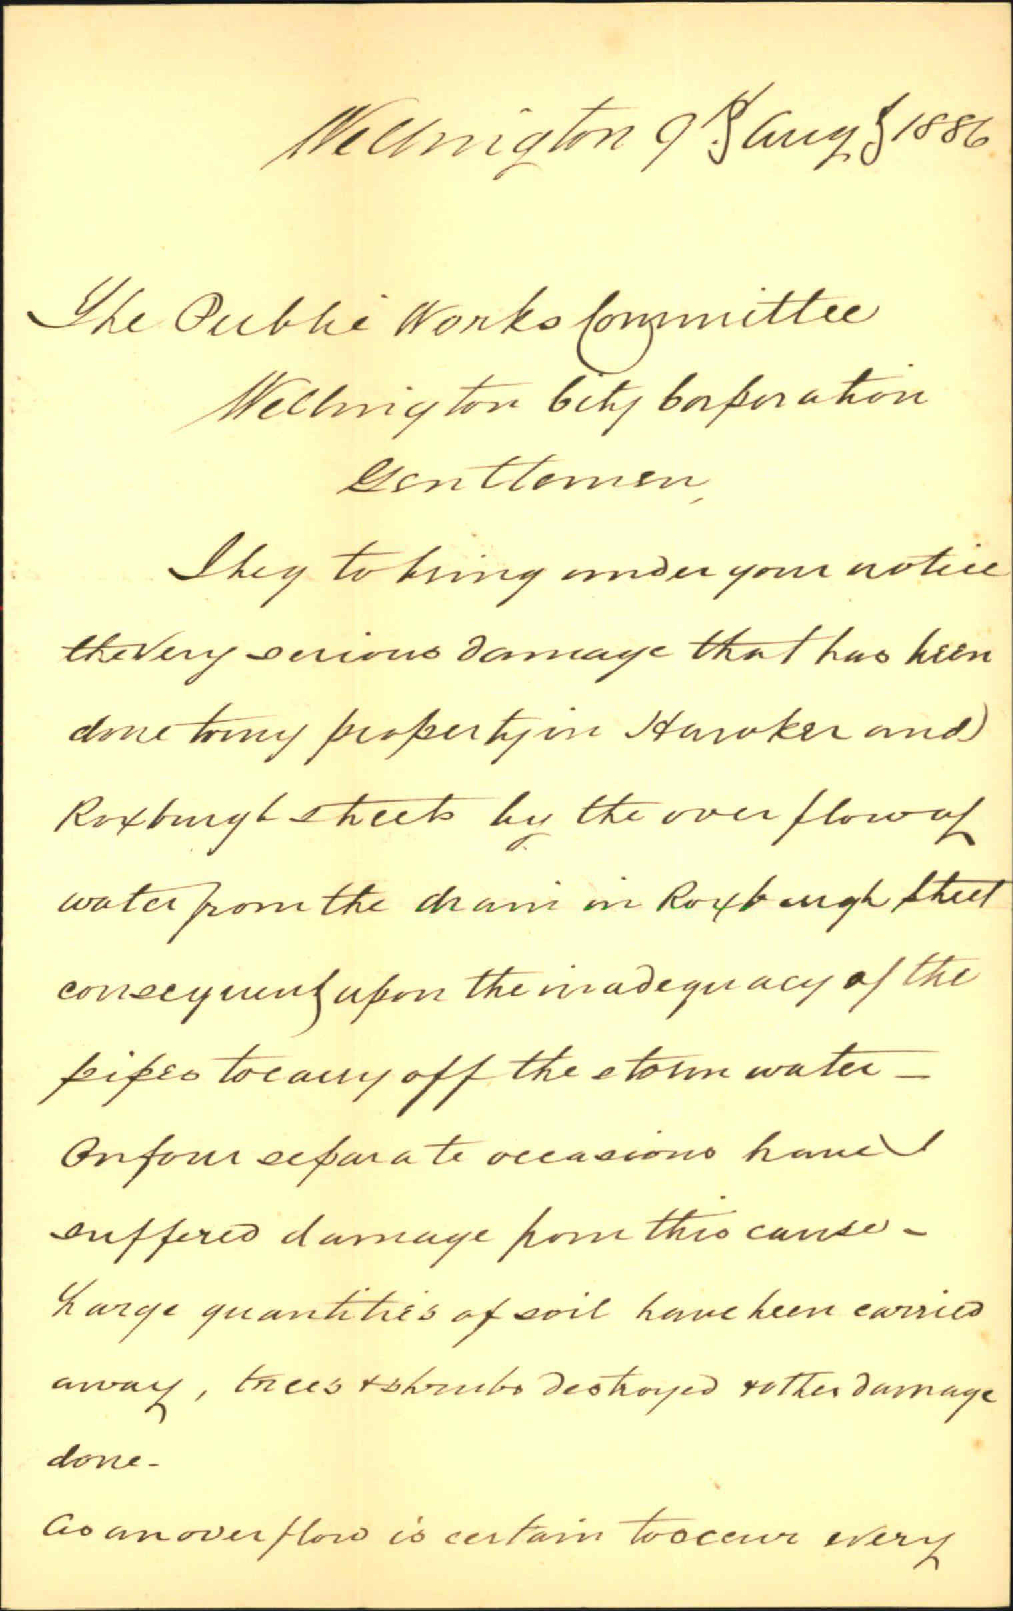 Wellington 9th Augt 1886
The Public Works Committee
Wellington City Corporation
Gentlemen,
I beg to bring under your notice
the very serious damage that has been
done to my property in Hawker and
Roxburgh streets by the over flow of
water from the drain in Roxburgh Street
consequent upon the inadequacy of the
pipes to carry off the storm water -
On four separate occasions have I
suffered damage from this cause -
Large quantities of soil have been carried
away, trees & shrubs destroyed & other damage
done -
As an over flow is certain to occur every